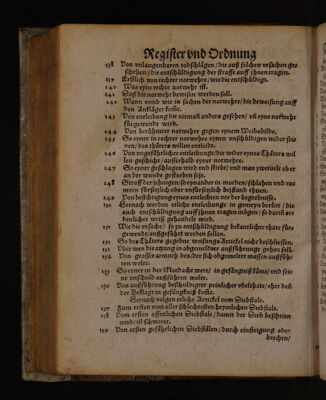 Register vnd Ordnung
138 Von vnlaugenbaren todschlägen / die auß solchen vrsachen ges
schehen / die entschüldigung der straffe auff jhnen tragen.
139 Erstlich von rechter notwehre / wie die entschüldigt.
140 Was eyne rechte notwehr ist.
141 Daß die notwehr bewisen werden soll.
142 Wann vnnd wie in sachen der notwehre / die beweisung auff
den Ankläger komt.
143 Von entleibung die niemandt anders gesehen / vñ eyn notwehr
fürgewendt wird.
144 Von berühmter notwehr gegen eynem Weibsbilde.
145 So eyner in rechter notwehre eynen vnschüldigen wider sei
nen / des thäters willen entleibt.
146 Von vngefährlicher entleibung die wider eynes Thäters wil
len geschicht / ausserhalb eyner notwehr.
147 So eyner geschlagen wird vnd stirbt / vnd man zweifelt ob er
an der wunde gestorben sey.
148 Straff derjehnigen so eynander in morden / schlahen vnd
fürsetzlich oder vnfürsetzlich beistandt thuen.
149 Von besichtigung eynes entleibten vor der begrebnusse.
150 Hernach werden etliche entleibunge in gemeyn berürt / die
auch entschüldigung auff jhnen tragen mögen / so darin
dentlicher weiß gehandelt wird.
151 Wie die vrsache / so zu entschüldigung bekantlicher thate für
gewendt / außgeführt werden sollen.
152 So des Thäters gegebene weisungs Artickel nicht beschliessen.
153 Vber wen die atzung in obgemelter außführunge gehen soll.
154 Von grosser armuth des / der sich obgemelter massen außfüh
ren wolte.
155 So eyner in der Mordacht were / in gefängniß käme / vnd sei
ne vnschuld außführen wolte.
156 Von außführung beschuldigter peinlicher vbelthate / ehe daß
der Beklagt in gefängknuß komt.
Hernach volgen etliche Artickel vom Diebstale.
157 Zum ersten vom aller schlechtesten heymlichen Diebstale.
158 Vom ersten offentlichen Diebstale / damit der Dieb beschrien
wird / ist schwerer.
159 Von ersten gefährlichen Diebställen / durch einsteigung oder
brechen /